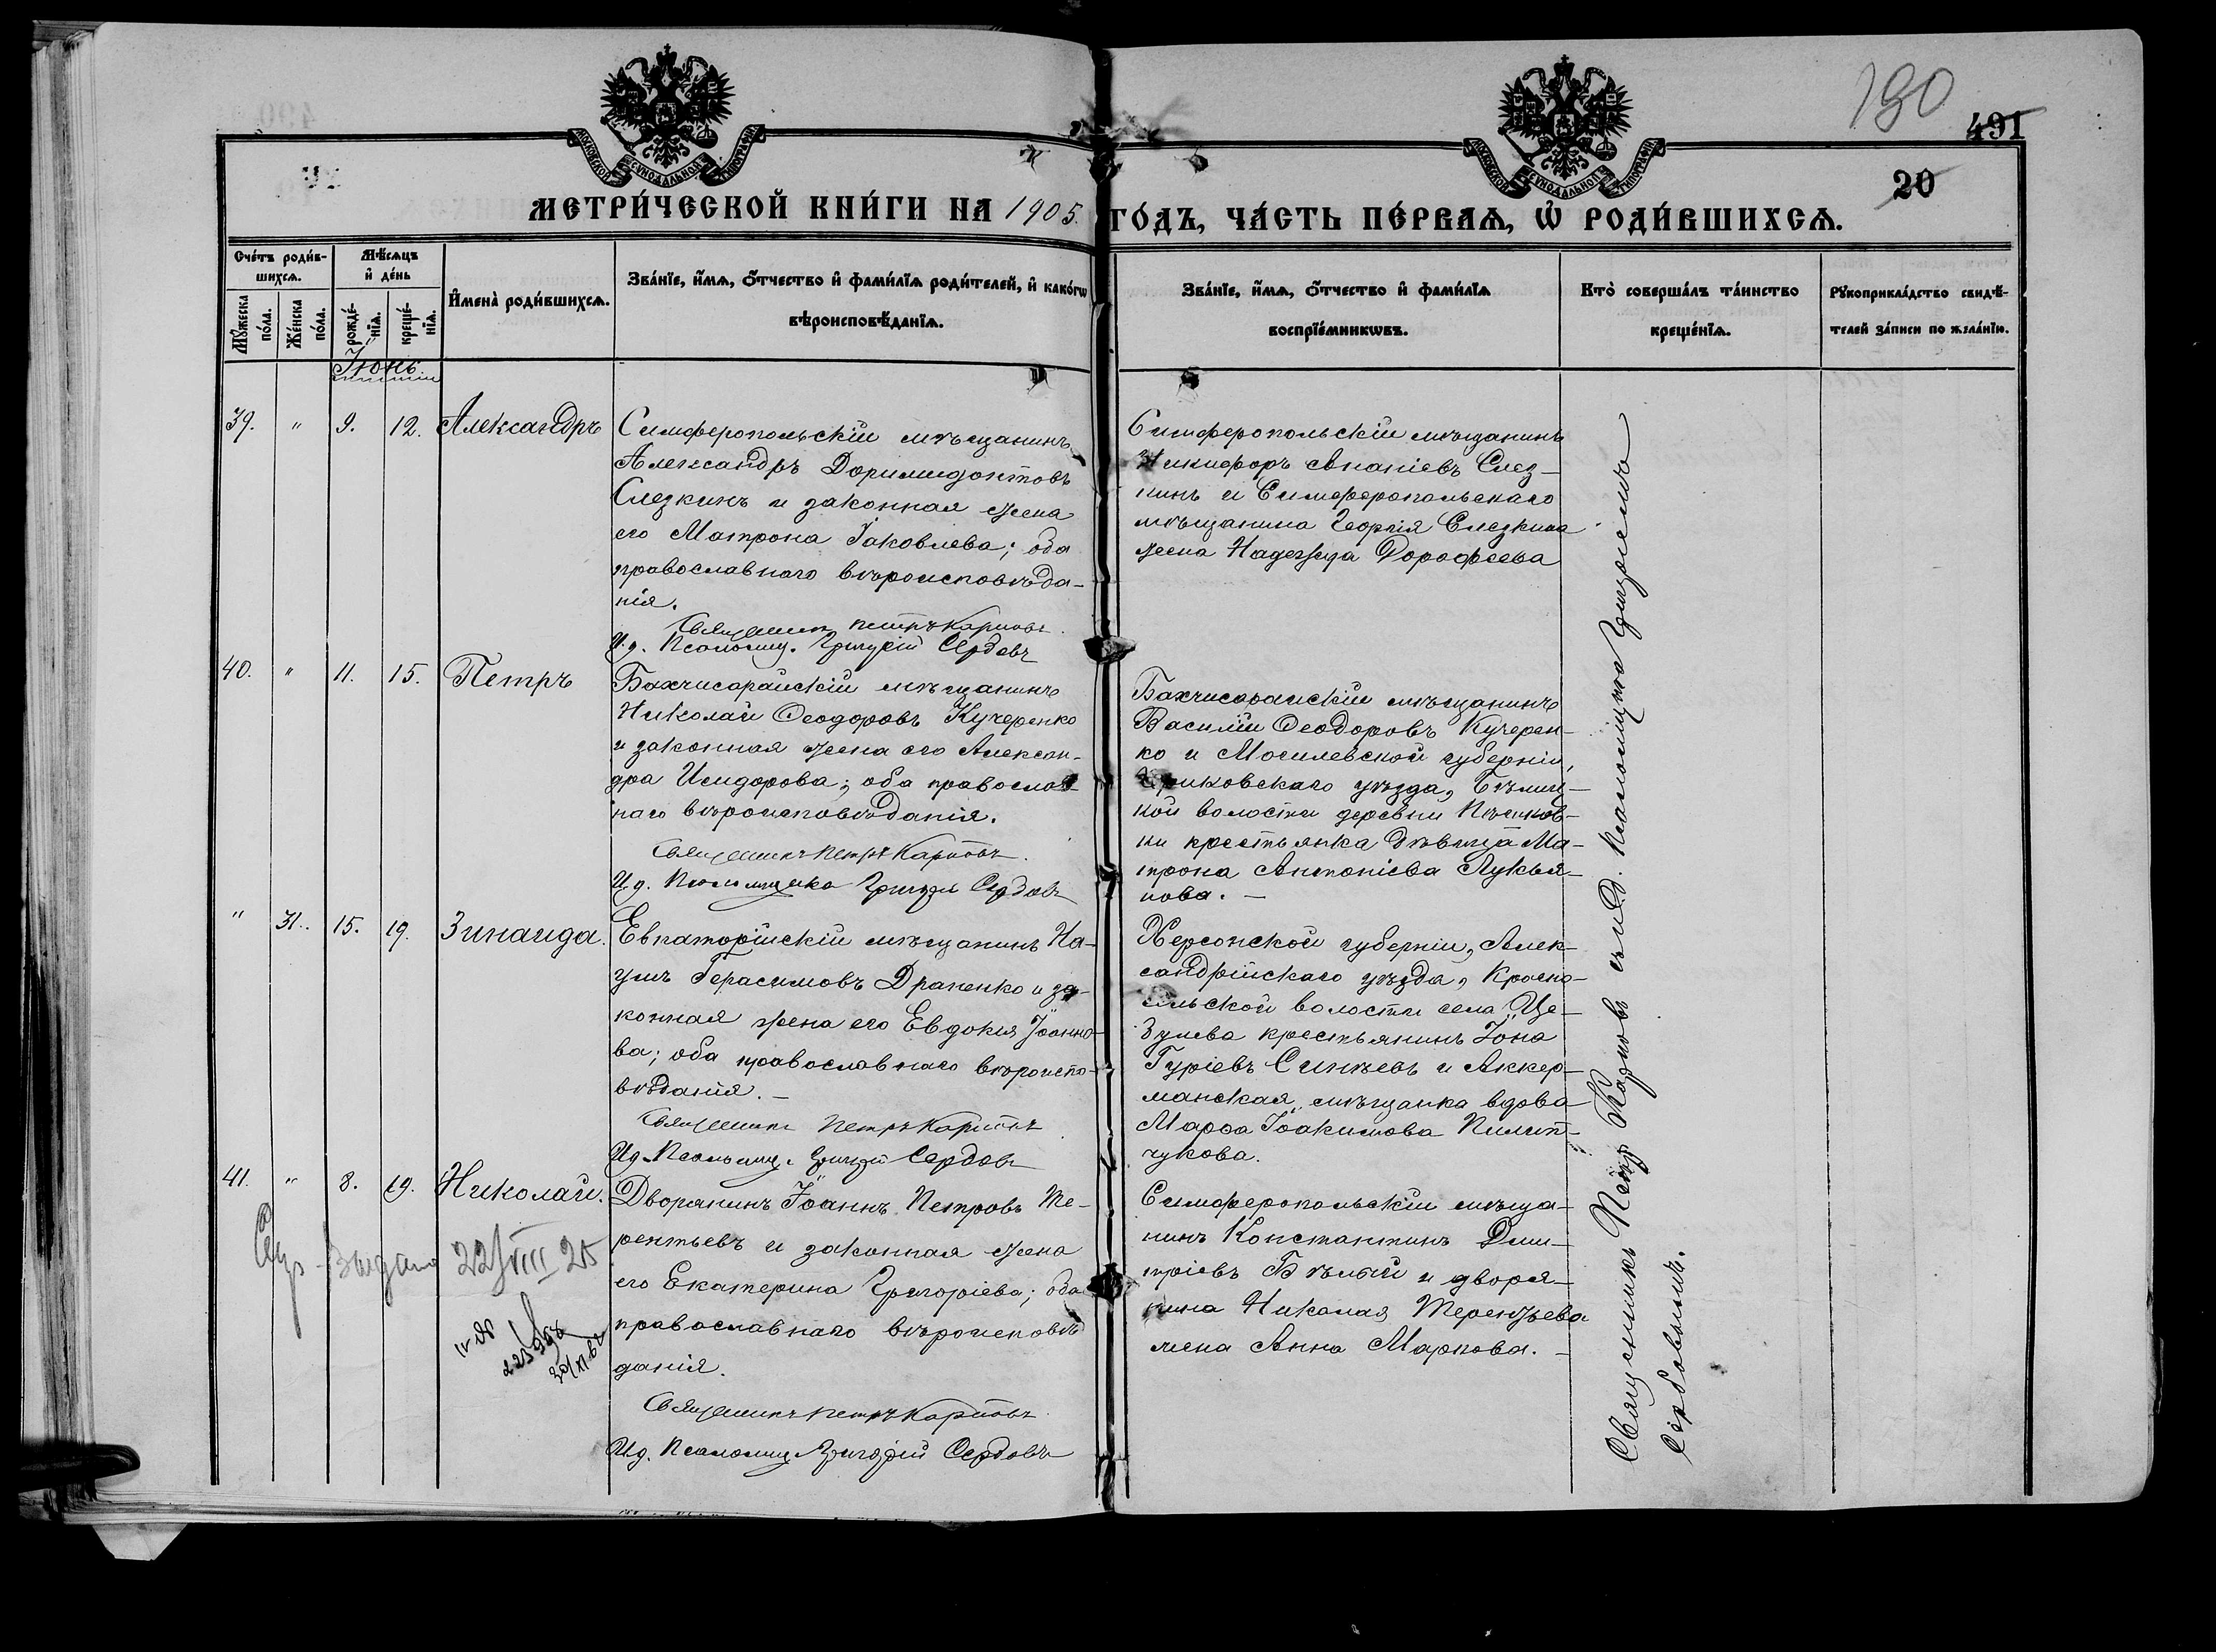 190
491
20
МОСКОВСКОЙ СѴНОДАЛЬНОЙ ТИПОГРАФІИ
МОСКОВСКОЙ СѴНОДАЛЬНОЙ ТИПОГРАФІИ
МЕТРИ́ЧЕСКОЙ КНИ́ГИ НА 1905. ГО́ДЪ, ЧА́СТЬ ПЕ́РВАѦ, Ѡ҆ РОДИ́ВШИХСѦ.
Сче́тъ роди́в-
шихсѧ.
Мꙋ́жеска
по́ла.
Же́нска
по́ла.
Мѣ́сѧцъ
и҆ де́нь
рожде́-
нїѧ.
креще́-
нїѧ.
И҆мена̀ роди́вшихсѧ.
Зва́нїе, и҆́мѧ, ѻ҆́тчество и҆ фами́лїѧ роди́телей, и҆ како́гѡ
вѣроисповѣ́данїѧ.
Зва́нїе, и҆́мѧ, ѻ҆́тчество и҆ фами́лїѧ
воспрїе́мникѡвъ.
Кто̀ соверша́лъ та́инство
креще́нїѧ.
Рꙋкоприкла́дство свидѣ́-
телей за́писи по жела́нїю.
Іюнь
39. " 9. 12. Александръ
Симферопольскій мѣщанинъ
Александръ Доримидонтовъ
Слезкинъ и законная жена
его Матрона Іаковлева; оба
православнаго вѣроисповѣда-
нія.
Священник Петръ Карповъ.
И.д. Псаломщ. Григорій Сердовъ
Симферопольскій мѣщанинъ
Никифоръ Ананіевъ Слез-
кинъ и Симферопольскаго
мѣщанина Георгія Слезкина
жена Надежда Дорофеева
40. " 11. 15. Петръ
Бахчисарайскій мѣщанинъ
Николай Ѳеодоровъ Кучеренко
и законная жена его Алексан-
дра Исидорова; оба православ-
наго вѣроисповѣданія.
Священникъ Петръ Карповъ.
И.д. Псаломщика Григорій Сердовъ
Бахчисарайскій мѣщанинъ
Василій Ѳеодоровъ Кучерен-
ко и Могилевской губерніи,
уѣзда,
кой волости деревни
ки крестьянка дѣвица Ма-
трона Антоніева Лукья-
нова. —
" 31. 15. 19. Зинаида.
Евпаторійскій мѣщанинъ На-
умъ Герасимовъ Драненко и за-
конная жена его Евдокія Іоанно-
ва; оба православнаго вѣроиспо-
вѣданія. —
Священникъ Петръ Карповъ
И.д. Псаломщ. Григорій Сердовъ
Херсонской губерніи, Алек-
сандрійскаго уѣзда, Красно-
сельской волости села Це-
зулева крестьянинъ Іона
Гуріевъ Синяевъ и Аккер-
манская мѣщанка вдова
Марѳа Іоакимова Пилип-
чукова.
41. " 8. 19. Николай.
Дворянинъ Іоаннъ Петровъ Те-
рентьевъ и законная жена
его Екатерина Григоріева; оба
православнаго вѣроисповѣ
данія.
Священникъ Петръ Карповъ
И.д. Псаломщ. Григорій Сердовъ
Симферопольскій мѣща-
нинъ Константинъ Дми-
тріевъ Бѣлый и дворя-
нина Николая Терентьева
жена Анна Маркова. —
выдано 22/VIII 25
Священникъ Петръ Карповъ съ и.д. псаломщика Григоріемъ
Сердовымъ.